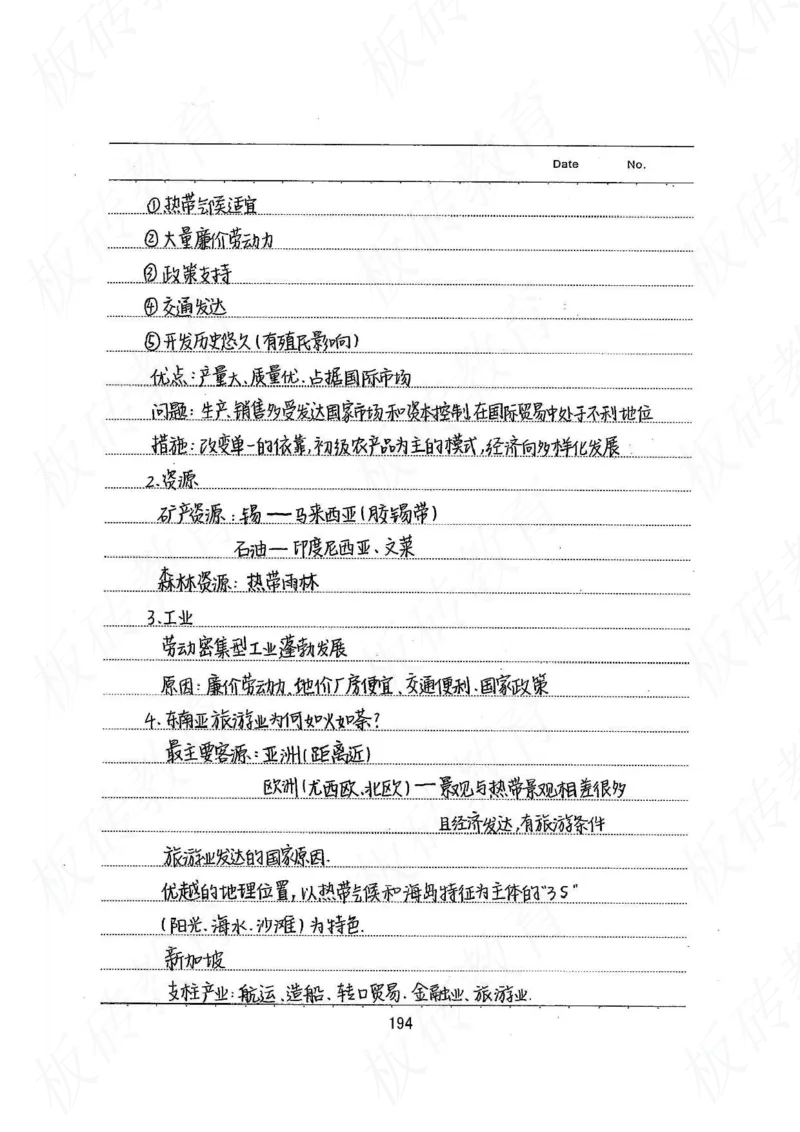 Date No.
①热带气候适宜
②大量廉价劳动力
③政策支持
④交通发达
⑤开发历史悠久(有殖民影响)
优点:产量大、质量优、占据国际市场
问题:生产、销售多受发达国家市场和资本控制,在国际贸易中处于不利地位
措施:改变单一的依靠,初级农产品为主的模式,经济向多样化发展
2.资源
矿产资源:锡——马来西亚(胶锡带)
石油—印度尼西亚、文莱
森林资源:热带雨林
3.工业
劳动密集型工业蓬勃发展
原因:廉价劳动力、地价厂房便宜、交通便利、国家政策
4.东南亚旅游业为何如火如荼?
最主要客源:亚洲(距离近)
欧洲(尤西欧、北欧)—景观与热带景观相差很多
且经济发达,有旅游条件
旅游业发达的国家原因.
优越的地理位置,以热带气候和海岛特征为主体的"3S"
(阳光.海水.沙滩)为特色.
新加坡
支柱产业:航运、造船、转口贸易.金融业、旅游业.
194
板砖教育